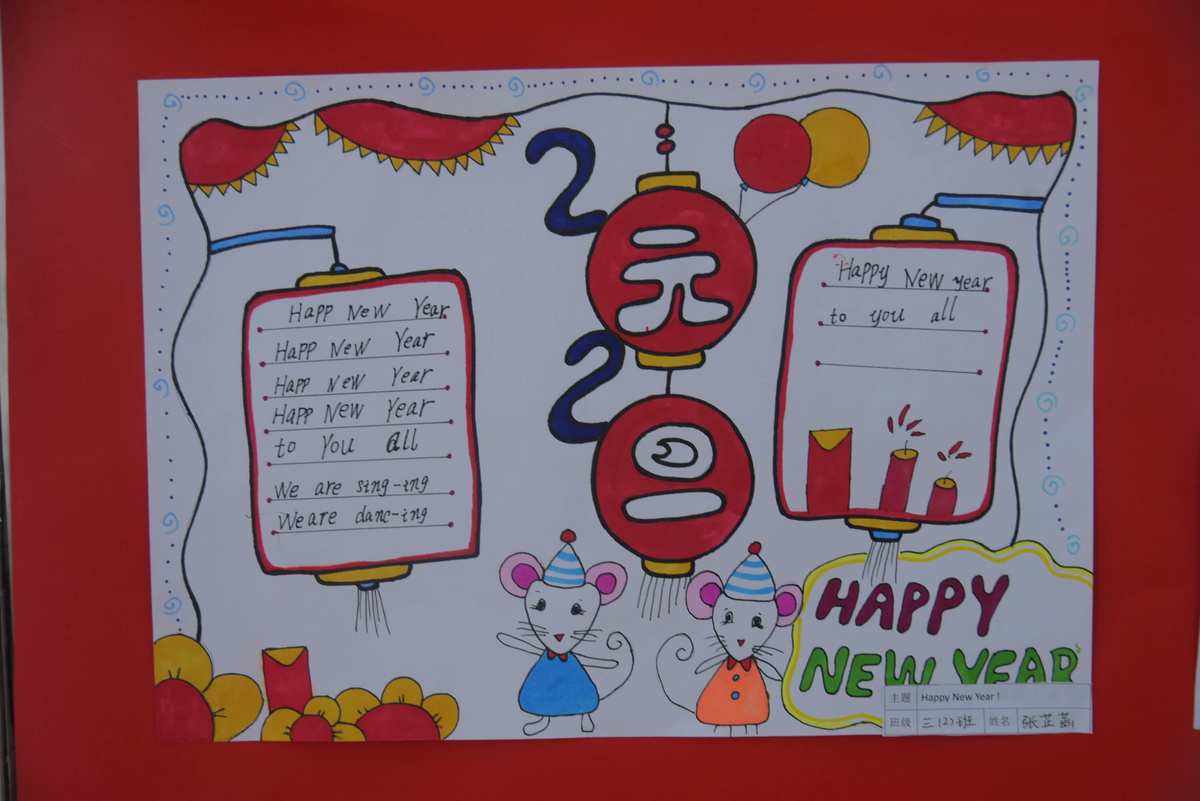 Happ New Year
Happ New Year
Happ New Year
Happ New Year
to you all
We are sing-ing
We are danc-ing
2
元
2
旦
Happy New year
to you all
HAPPY
NEW YEAR
主题 Happy New Year !
班级 三(2)班 姓名 张芷菡